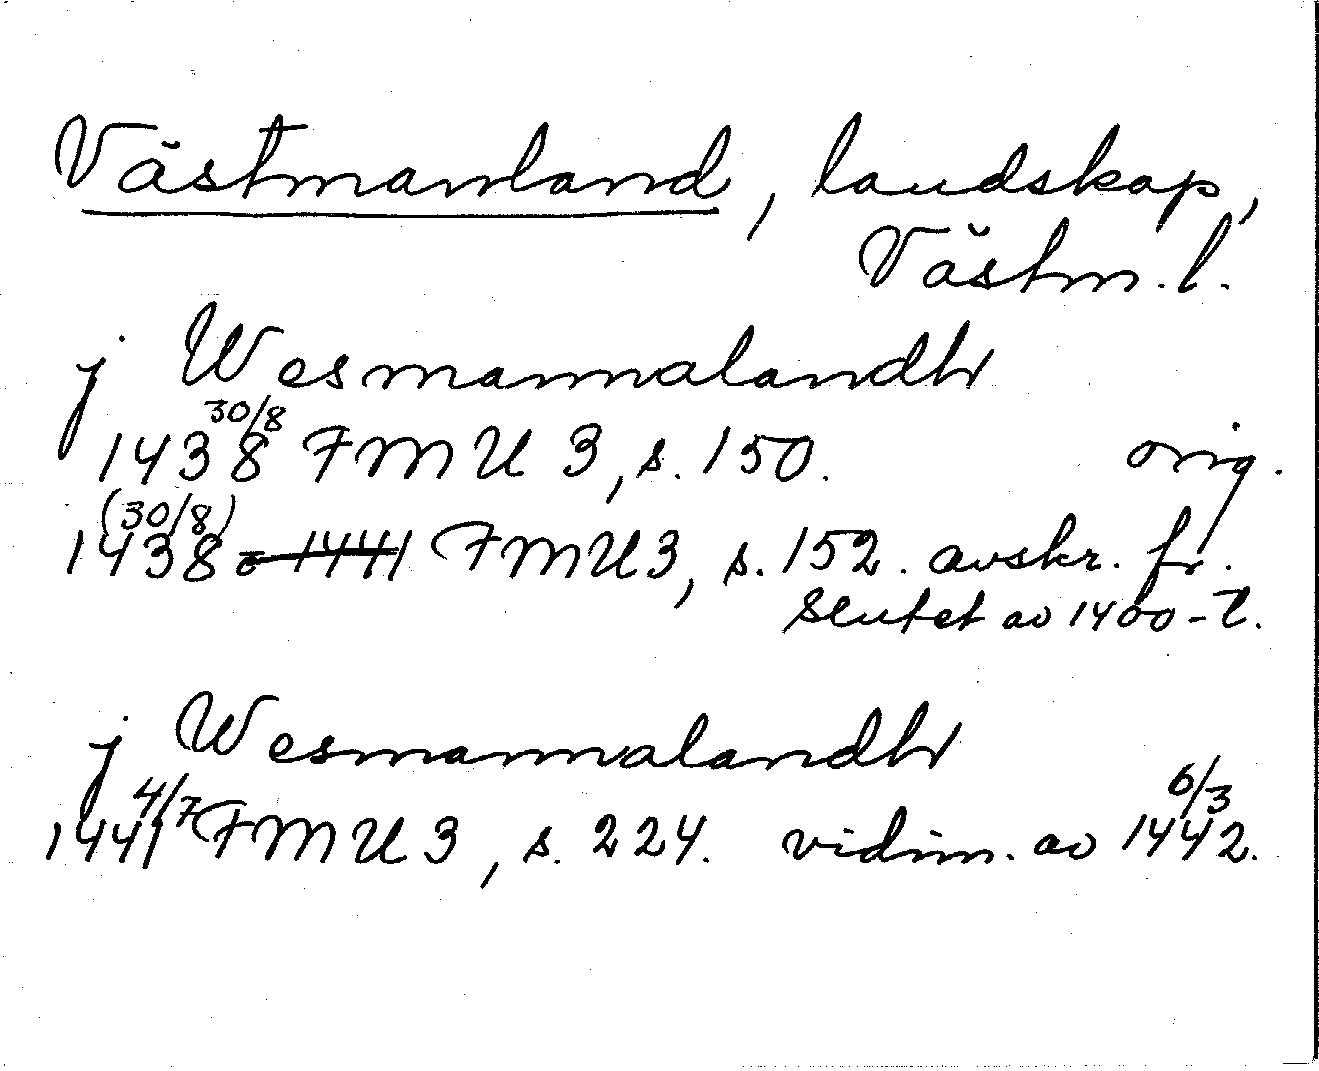 Västmanland, landskap,
Västm. l.
j Wesmannalandh
30/8
1438 FMU 3, s. 150. orig.
(30/8)
1438 o 1441 FMU 3, s. 152. avskr. fr.
slutet av 1400-t.
j Wesmannalandh
4/7 6/3
1441 FMU 3, s. 224. vidim. av 1442.